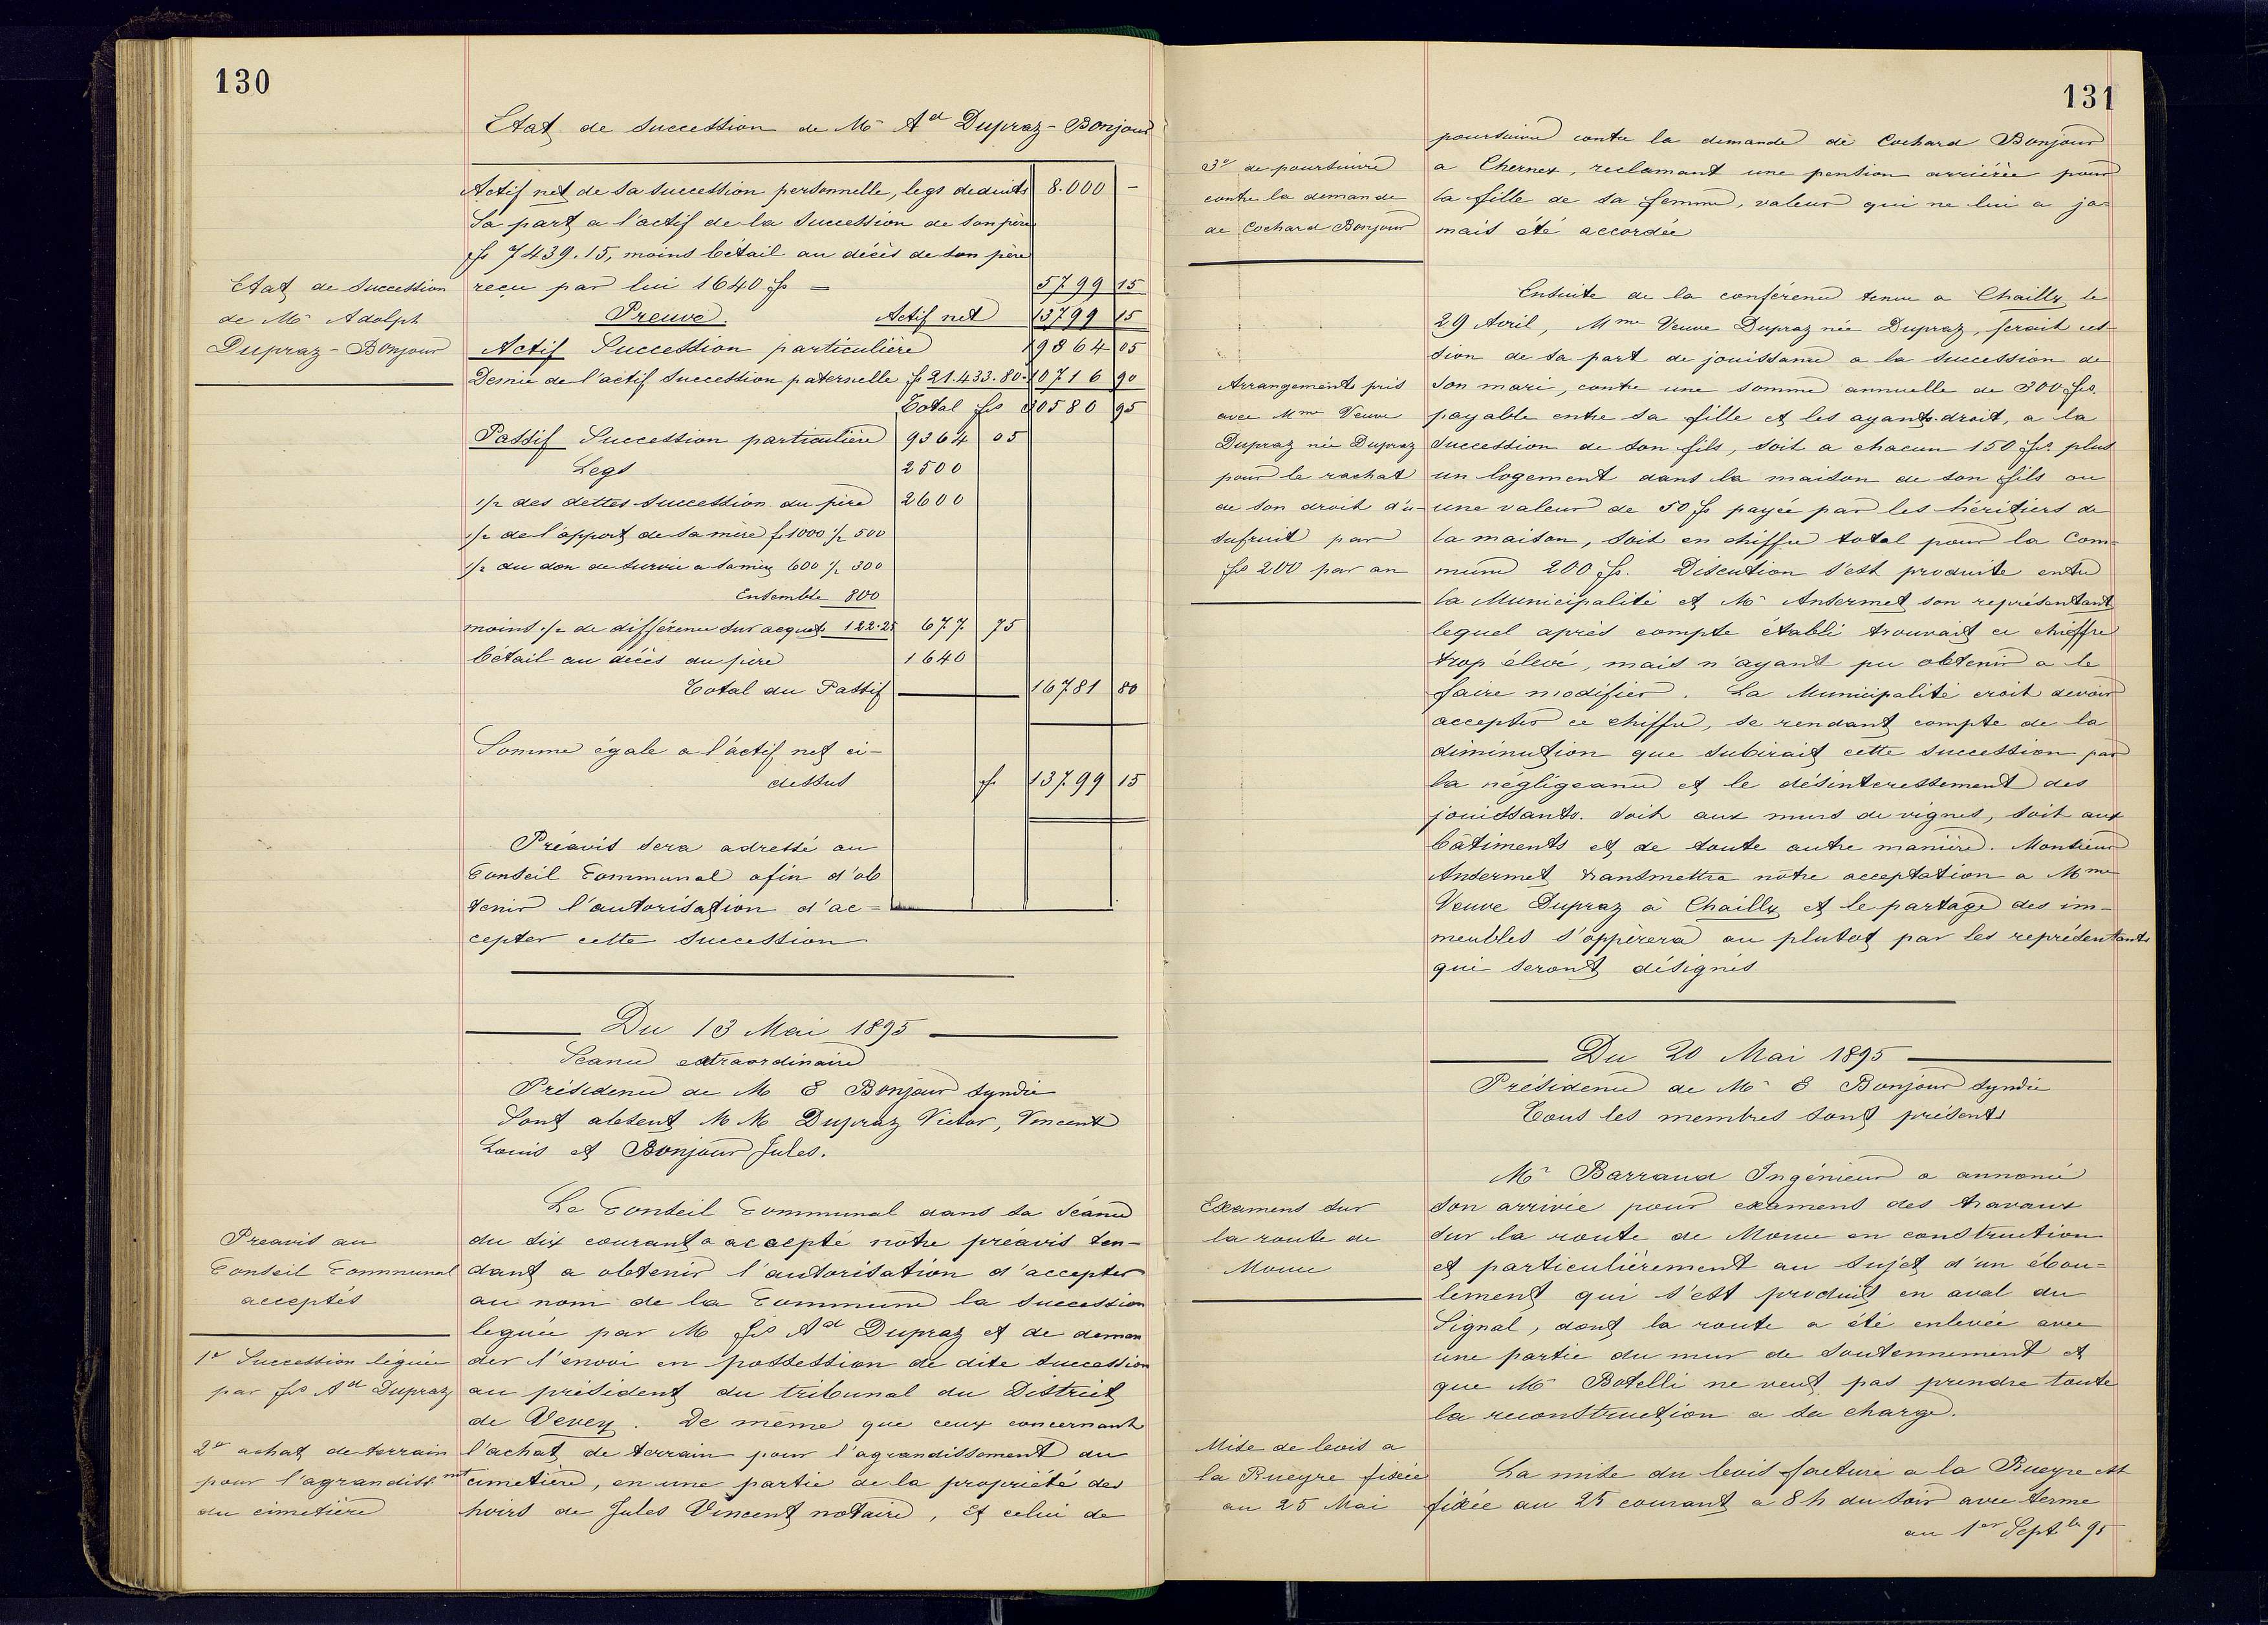 130
Etat de succession de Mr Ad Dupraz-Bonjour
Actif net de sa succession personnelle, legs deduits 8.000 –
Sa part a l'actif de la succession de son père
fs 7439.15, moins bétail au décès de son père
reçu par lui 1640 fs = 5799 15
Etat de succession
de Mr Adolph
Dupraz-Bonjour
Preuve. Actif net 13799 15
Actif Succession particulière 19864 05
Demie de l'actif succession paternelle fs 21.433.80. 10716 90
Total frs 30580 95
Passif Succession particulière 9364 05
Legs 2500
1/2 des dettes succession du père 2600
1/2 de l'apport de sa mère f. 1000 1/2 500
1/2 du don de survie a sa mère 600 1/2 300
Ensemble 800
moins 1/2 de différence sur acquets 122.25 677 75
bétail au décès du père 1640
Total du Passif 16781 80
Somme égale a l'actif net ci-
dessus fs 13799 15
Préavis sera adressé au
Conseil Communal afin d'ob
tenir l'autorisation d'ac-
cepter cette succession
Du 13 Mai 1895
Seance extraordinaire
Présidence de M E Bonjour syndic
Sont absent M M Dupraz Victor, Vincent
Louis et Bonjour Jules.
Preavis au
Conseil Communal
acceptés
Le Conseil Communal dans sa séance
du dix courant a accepté nôtre préavis ten-
dant a obtenir l'autorisation d'accepter
au nom de la Commune la succession
leguée par M fs Ad Dupraz et de deman
der l'envoi en possession de dite succession
au président du tribunal du District
de Vevey. De même que ceux concernant
l'achat de terrain pour l'agrandissement du
cimetière, en une partie de la propriété des
hoirs de Jules Vincent notaire, et celui de
1° Succession léguée
par fs Ad Dupraz
2° achat de terrain
pour l'agrandissmt
du cimetière
131
3° de poursuivre
contre la demande
de Cochard Bonjour
poursuivre contre la demande de Cochard Bonjour
a Chernex, reclamant une pention arriérée pour
la fille de sa femme, valeur qui ne lui a ja-
mais été accordée
Arrangements pris
avec Mme Veuve
Dupraz née Dupraz
pour le rachat
de son droit d'u-
sufruit par
frs 200 par an
Ensuite de la conférence tenue a Chailly le
29 Avril, Mme Veuve Dupraz née Dupraz, ferait ces-
sion de sa part de jouissance a la succession de
son mari, contre une somme annuelle de 300 frs.
payable entre sa fille et les ayants-droit, a la
succession de son fils, soit a chacun 150 frs. plus
un logement dans la maison de son fils ou
une valeur de 50 fs payée par les héritiers de
la maison, soit en chiffre total pour la Com=
mune 200 fs. Discution s'est produite entre
la Municipalité et Mr Ansermet son représentant
lequel après compte établi trouvait ce chieffre
trop élevé, mais n'ayant pu obtenir a le
faire modifier. La Municipalité croit devoir
accepter ce chiffre, se rendant compte de la
diminution que subirait cette succession par
la négligeance et le désinteressement des
jouissants. soit aux murs de vignes, soit aux
bâtiments et de toute autre manière. Monsieur
Ansermet transmettra nôtre acceptation a Mme
Veuve Dupraz à Chailly et le partage des im-
meubles s'oppèrera au plutot par les représentants
qui seront désignés
Du 20 Mai 1895
Présidence de Mr E Bonjour syndic
Tous les membres sont présents
Examens sur
la route de
Mouce
Mr Barraud Ingénieur a annoncé
son arrivée pour examens des travaux
sur la route de Mouce en construction
et particulièrement au sujet d'un ébou=
lement qui s'est produit en aval du
Signal, dont la route a été enlevée avec
une partie du mur de soutennement et
que Mr Botelli ne veut pas prendre toute
la reconstruction a sa charge.
Mise de bois a
la Rueyre fixée
au 25 Mai
La mise du bois facturé a la Rueyre est
fixée au 25 courant a 8 h du soir avec terme
au 1er Septbr 95